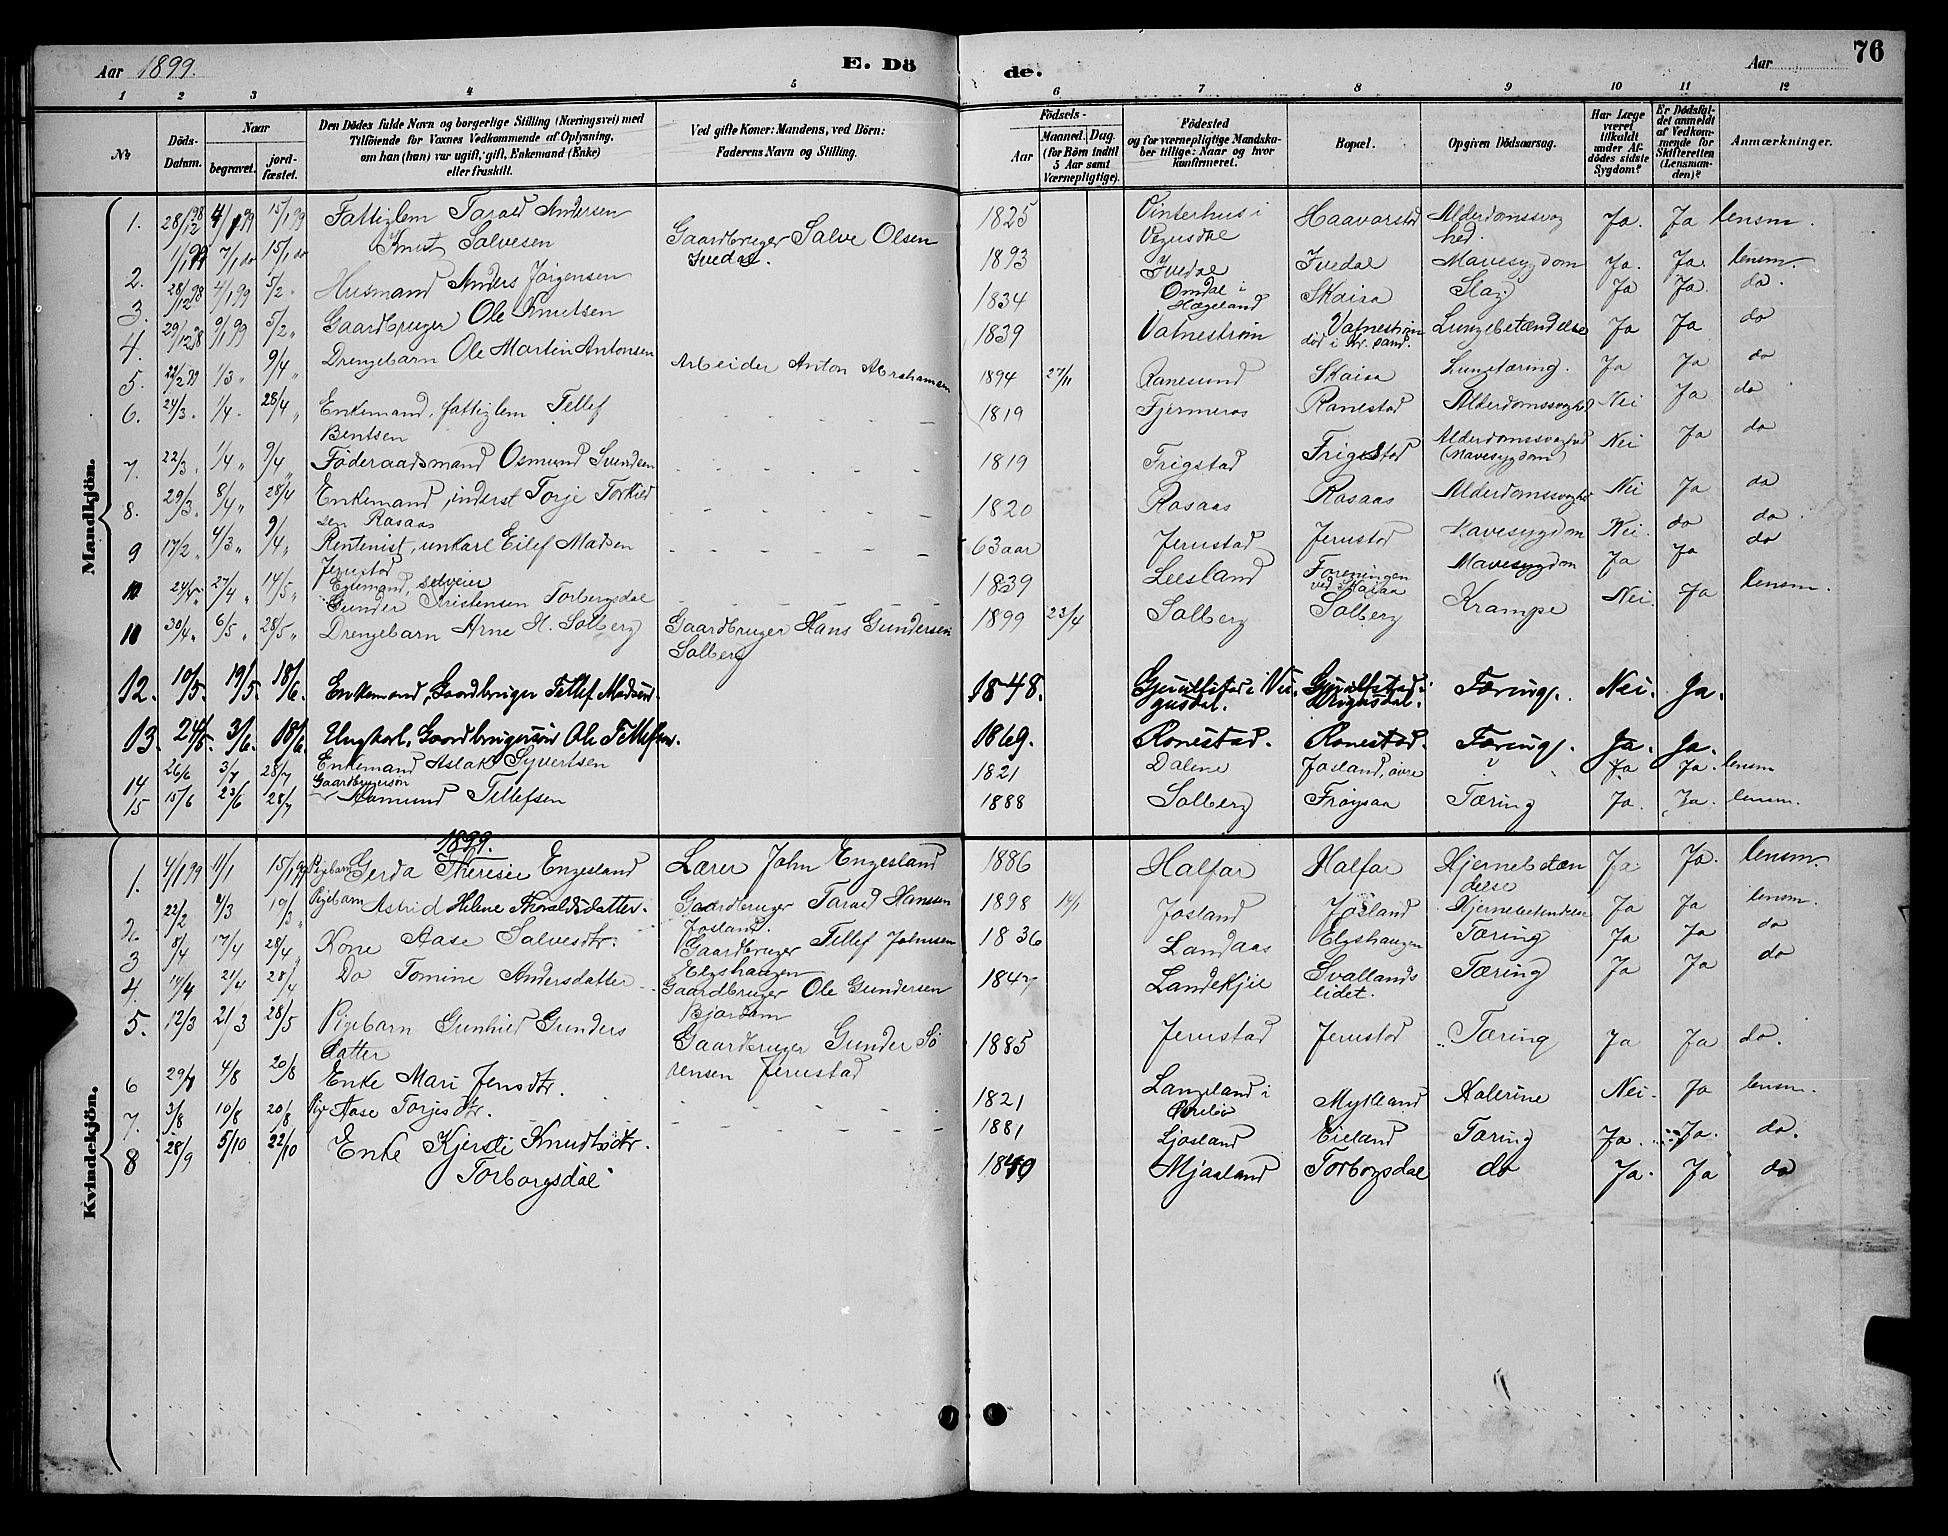 Aar 1899.
E. Dö
de.
Aar
76
1 2 3 4 5 6 7 8 9 10 11 12
№
Döds-Datum.
Naar
begravet.
jordfæstet.
Den Dödes fulde Navn og borgerlige Stilling (Næringsvei) med
Tilföiende for Voxnes Vedkommende af Oplysning,
om han (hun) var ugift, gift, Enkemand (Enke)
eller fraskilt.
Ved gifte Koner: Mandens, ved Börn:
Faderens Navn og Stilling.
Födsels-
Aar
Maaned. Dag.
(for Börn indtil
5 Aar samt
Værnepligtige).
Födested
og for værnepligtige Mandskaber tillige: Naar og hvor
konfirmeret.
Bopæl.
Opgiven Dödsaarsag.
Har Læge
været
tilkaldt
under Afdödes sidste
Sygdom?
Er Dödsfaldet anmeldt
af Vedkommende for
Skifteretten
(Lensmanden)?
Anmærkninger.
Mandkjön.
1. 28/12 98 4/1 99 15/1 99 Fattiglem Tarald Andersen 1825 Vinterhus i Vegusdal Haavorstad Alderdomssvaghed. Ja. Ja lensm.
1/1 99 7/1 do 15/1 do Knut Salvesen Gaardbruger Salve Olsen Ivedal. 1893 Ivedal Ivedal Mavesygdom Ja. Ja. lensm.
2. 28/12 98 4/1 99 5/2 " Husmand Anders Jörgensen 1834 Omdal i Hægeland Skaiaa Slag. Ja Ja. do.
3. 29/12 98 9/1 99 5/2 " Gaardbruger Ole Knutsen 1839 Vatneström Vatneström död i Kr.sand. Lungebetændelse Ja Ja do
4. 22/2 99 1/3 " 9/4 " Drengebarn Ole Martin Antonsen Arbeider Anton Abrahamsen 1894 27/11 Ranesund Skaiaa Lungetæring. Ja Ja do
5.
6. 24/3. 1/4. 28/4 " Enkemand, fattiglem Tellef Bentsen 1819 Fjermeros Ranestad Alderdomssvaghed Nei Ja. do
7. 22/3 . 1/4 " 9/4 " Föderaadsmand Osmund Svendsen 1819 Frigstad Frigstad Alderdomssvaghed (Mavesygdom) Nei Ja do
8. 29/3 . 8/4 " 28/4 Enkemand, inderst Torje Torkildsen Rosaas 1820 Rosaas Rosaas Alderdomssvaghed Nei Ja do
9 17/2 " 4/3 " 9/4 " Rentenist, unkarl Eilef Madsen Jerustad 63 aar Jerustad Jerustad Mavesygdom Nei. do do.
10 24/4 " 27/4 " 14/5 " Egtemand, selveier Gunder Kristensen Torborgsdal 1839 Leesland Foreningen ved Skaiaa Mavesygdom Ja Ja do
11 30/4 " 6/5 " 28/5 " Drengebarn Arne H. Solberg Gaardbruger Hans Gundersen Solberg 1899 23/4 Solberg Solberg Krampe Nei. Ja lensm.
12. 10/5. 19/5. 18/6. Enkemand, Gaardbruger Tellef Madsen. 1848. Gjerulfstad i Vegusdal. Gjerulfstad i Vegusdal. Tæring. Nei. Ja.
13. 24/5. 3/6. 18/6 Ungkarl, Gaardbrugersön Ole Tellefsen. 1869. Ronestad. Ronestad. Tæring. Ja. Ja.
14 26/6 3/7 28/7 Enkemand Aslak Syvertsen 1821 Dalene Josland, övre ? Ja Ja. lensm
15 15/6 23/6 28/7 Gaardbrugersön Aamund Tellefsen 1888 Solberg Fröysaa Tæring Ja. Ja. lensm.
Kvindekjön.
1899.
1. 4/1 99 11/1 15/1 99 Pigebarn Gerda Theresie Engesland Lærer John Engesland 1886 Halfar Halfar Hjernebetændelse Ja Ja. lensm.
2. 22/2 4/3 19/3 " Pigebarn Astrid Helene Thoraldsdatter. Gaardbruger Tarald Hanssen Josland. 1898 14/1 Josland Josland Hjernebetendelse Ja Ja lensm.
3 8/4 17/4 28/4 " Kone Aase Salvesdtr. Gaardbruger Tellef Johnsen Elgshaugen 1836 Landaas Elgshaugen Tæring Ja Ja do
4. 14/4 21/4 28/4 Do Tomine Andersdatter Gaardbruger Ole Gundersen 1847 Landekjie Svallandslidet. Tæring Ja Ja do
5. 12/3 21/3 28/5 Pigebarn Gunhild Gundersdatter Gaardbruger Gunder Sörensen Jerustad 1885 Jerustad Jerustad Tæring Ja Ja do.
6 29/7 4/8 20/8 Enke Mari Jensdtr. 1821 Langeland i Mykland Kolerine Nei. Ja lensm.
7. 3/8 10/8 20/8 Pige Aase Torjesdtr. 1881 Ljosland Eieland Tæring Ja. Ja. do.
8 28/9 5/10 22/10 Enke Kjersti Knudtsdtr. Torborgsdal 1840 Mjaaland Torborgsdal do Ja. Ja do